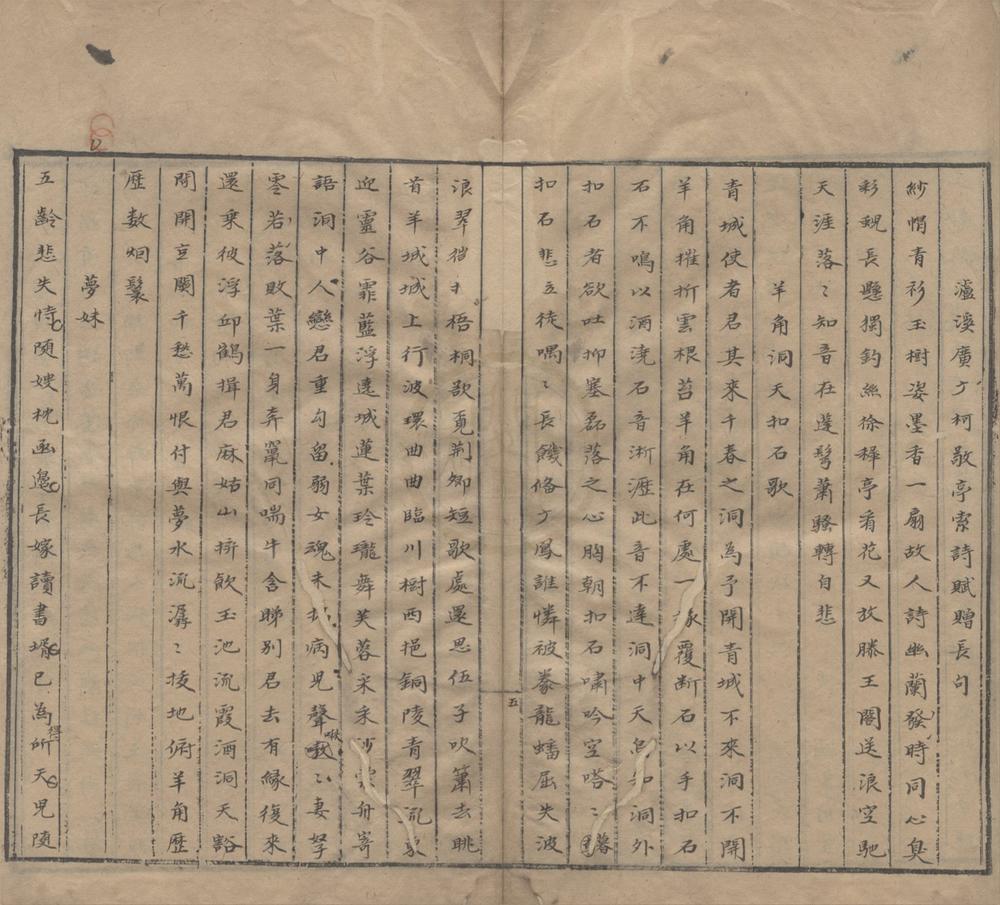 瀘溪廣文柯敬亭索詩賦贈長句
紗帽青衫玉樹姿墨香一扇故人詩幽蘭發時同心臭
彩鷁長懸獨釣絲徐穉亭看花又放滕王閣送浪空馳
天涯落〻知音在蓬髩蕭騷轉自悲
羊角洞天扣石歌
青城使者君其來千春之洞為予開青城不來洞不開
羊角摧折雲根苔羊角在何處一掾覆斷石以手扣石
石不鳴以酒澆石音淅瀝此音不達洞中天烏知洞外
扣石者欲吐抑塞磊落之心胸朝扣石嘯吟空嗒〻暮
扣石悲立徒喁〻長饑脩丁鳳誰憐被豢龍蟠屈失波
浪翠彴才梧桐歌覓荆卿短歌處還思伍子吹簫去眺
首羊城城上行波環曲曲臨川樹西挹銅陵青翠流
迎靈谷霏藍浮遠城蓮葉玲瓏舞芙蓉采采沙棠舟寄
語洞中人戀君重勾留弱女魂未招病兒聲啾〻妻孥
零若落敗葉一身奔竄同喘牛含睇别君去有緣復來
還乘彼浮邱鶴揖君麻姑山擠飲玉池流霞酒洞天豁
閉開豆闋千愁萬恨付與夢水流潺〻挍地俯羊角歷
歷數烟鬟
夢妹
五齡悲失恃隨嫂枕函邊長嫁讀書壻已為所天兒隨
五